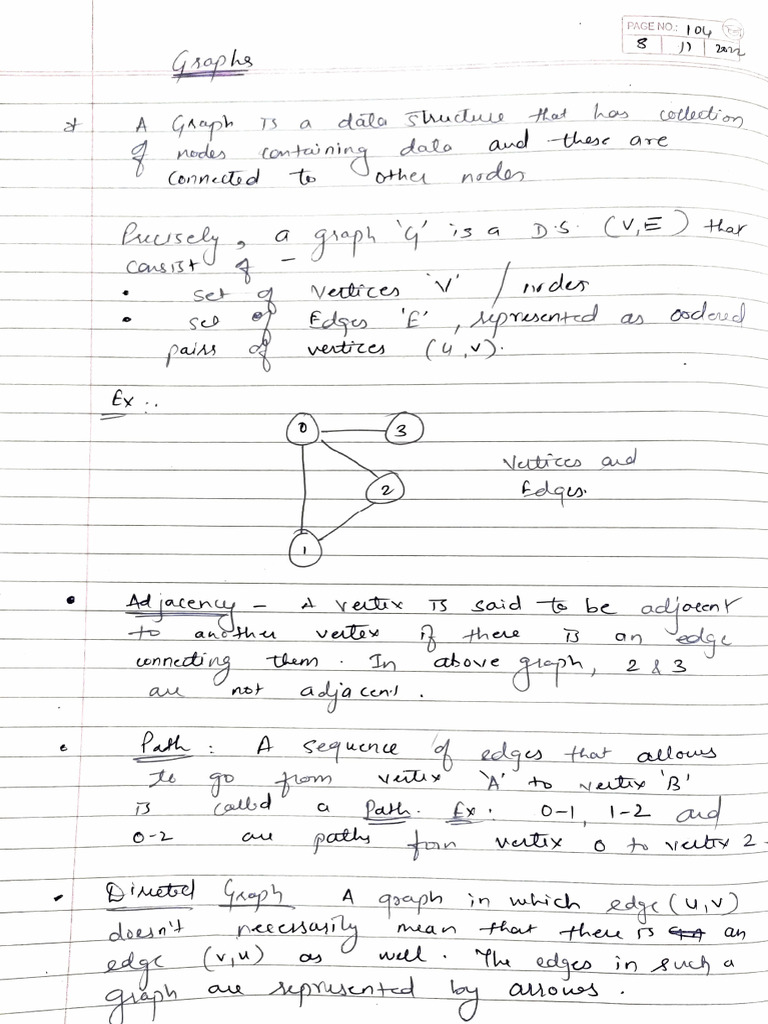 PAGE NO.: 104
8 | 11 | 2022
Graphs
* A Graph is a data structure that has collection
of nodes containing data and these are
connected to other nodes
Precisely, a graph 'G' is a D.S. (V,E) that
consist of -
• set of vertices 'V' / nodes
• set of Edges 'E', represented as ordered
pairs of vertices (u,v).
Ex :.
0 3
Vertices and
2 Edges.
1
• Adjacency - A vertex is said to be adjacent
to another vertex if there is an edge
connecting them. In above graph, 2 & 3
are not adjacent.
• Path: A sequence of edges that allows
to go from vertex 'A' to vertex 'B'
is called a Path. Ex: 0-1, 1-2 and
0-2 are paths from vertex 0 to vertex 2.
• Directed Graph A graph in which edge (u,v)
doesn't necessarily mean that there is an
edge (v,u) as well. The edges in such a
graph are represented by arrows.